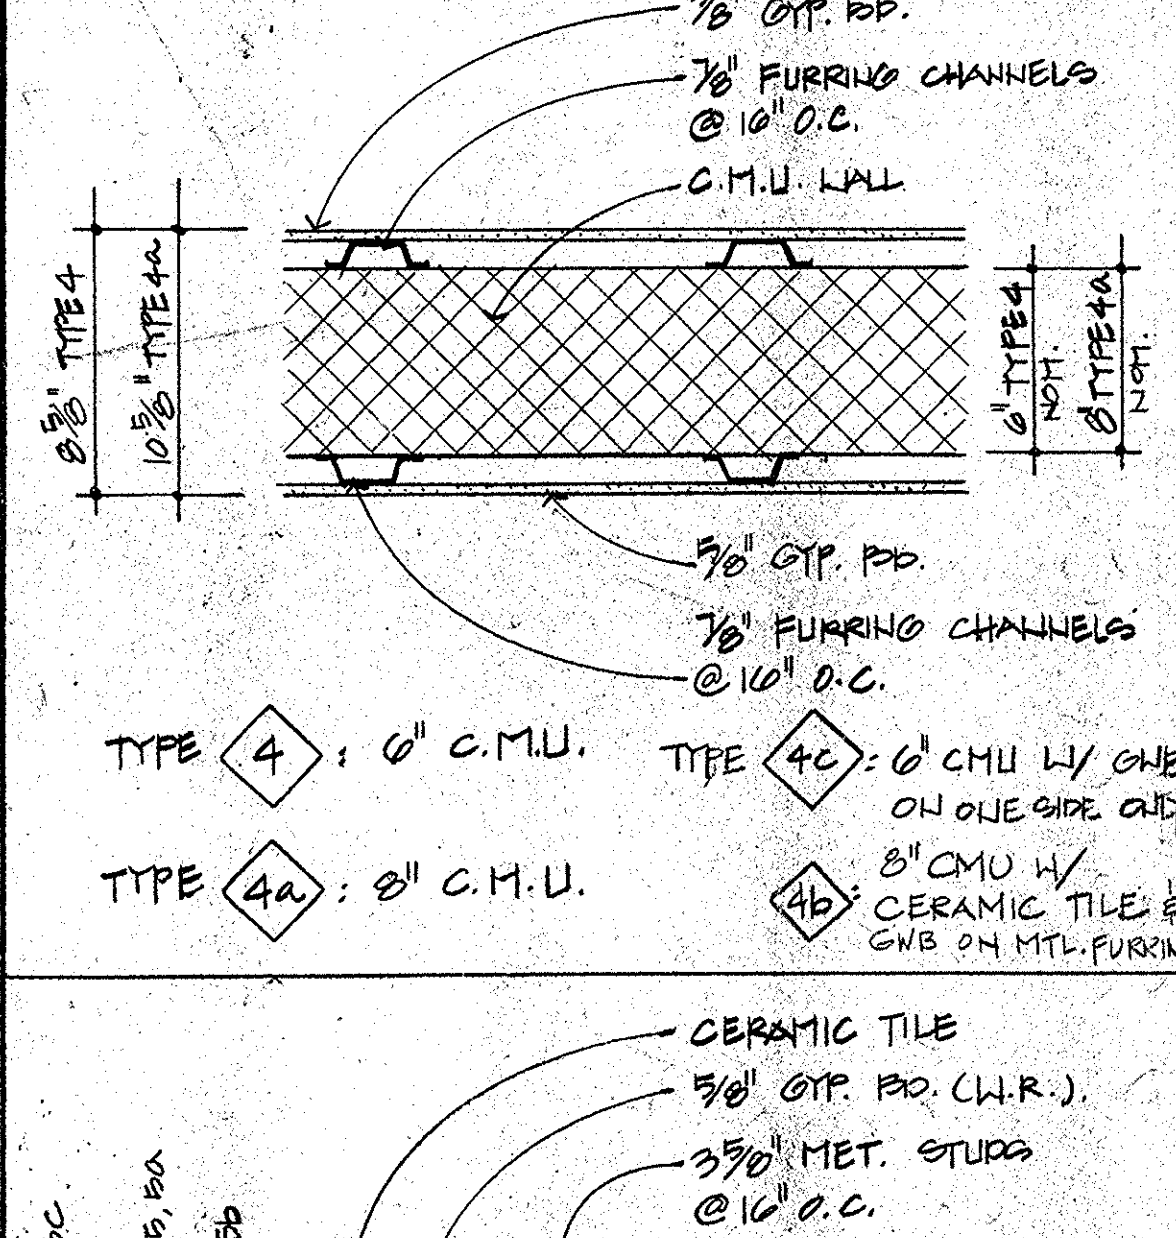 GYP. BD.
7/8" FURRING CHANNELS
@ 16" O.C.
C.M.U. WALL
8 5/8" TYPE 4
10 5/8" TYPE 4a
6" TYPE 4
NOM.
8" TYPE 4a
NOM.
5/8" GYP. BD.
7/8" FURRING CHANNELS
@ 16" O.C.
TYPE 4 : 6" C.M.U.
TYPE 4c : 6" CMU W/
ON ONE SIDE
TYPE 4a : 8" C.M.U.
4b : 8" CMU W/
CERAMIC TILE &
GWB ON MTL.
CERAMIC TILE
5/8" GYP. BD. (W.R.).
3 5/8" MET. STUDS
@ 16" O.C.
5, 5a
5b